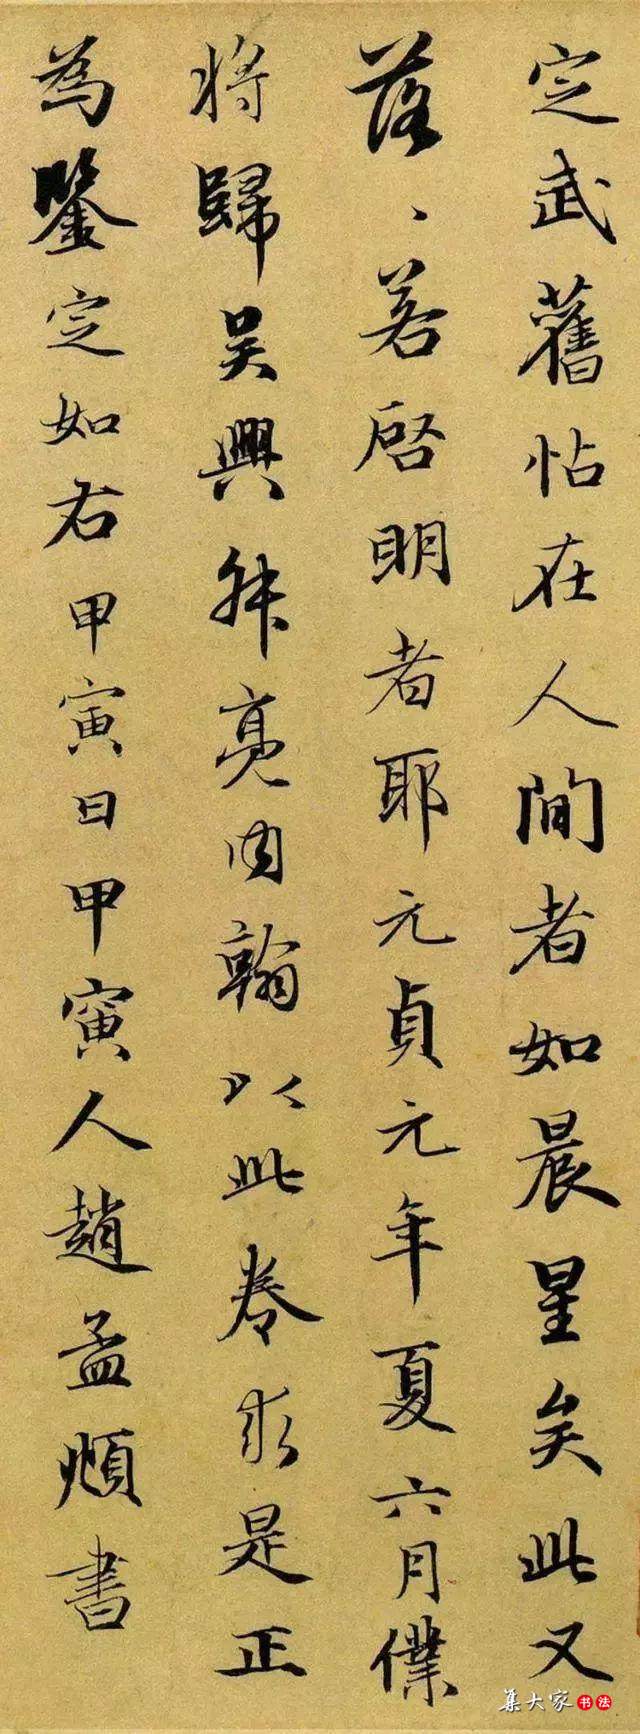 定武舊帖在人間者如晨星矣此又
落、若啓明者耶元貞元年夏六月僕
将歸吴興舛亮内翰以此卷求是正
為鑒定如右甲寅日甲寅人趙孟頫書
集大家书法